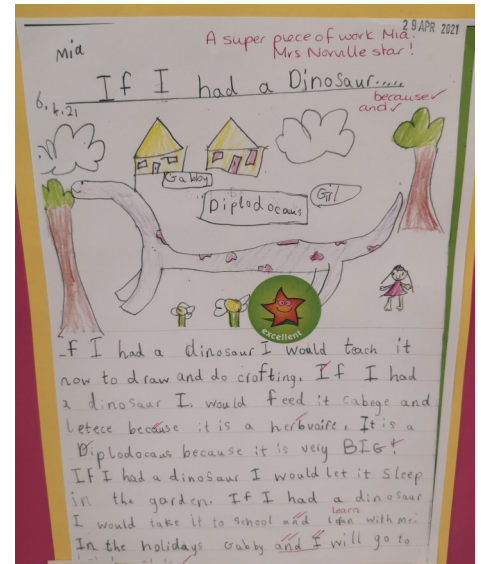 29 APR 2021
Mia
A super piece of work Mia.
Mrs Norville star!
If I had a Dinosaur.....
6.4.21
because ✓
and ✓
Gabby
Diplodocaus
Girl
excellent
If I had a dinosaur I would teach it
how to draw and do crofting. If I had
a dinosaur I would feed it cabege and
letece because it is a herbvoire. It is a
Diplodocaus because it is very BIG!
If I had a dinosaur I would let it sleep
in the garden. If I had a dinosaur
learn
I would take it to school and with me.
In the holidays Gabby and I will go to